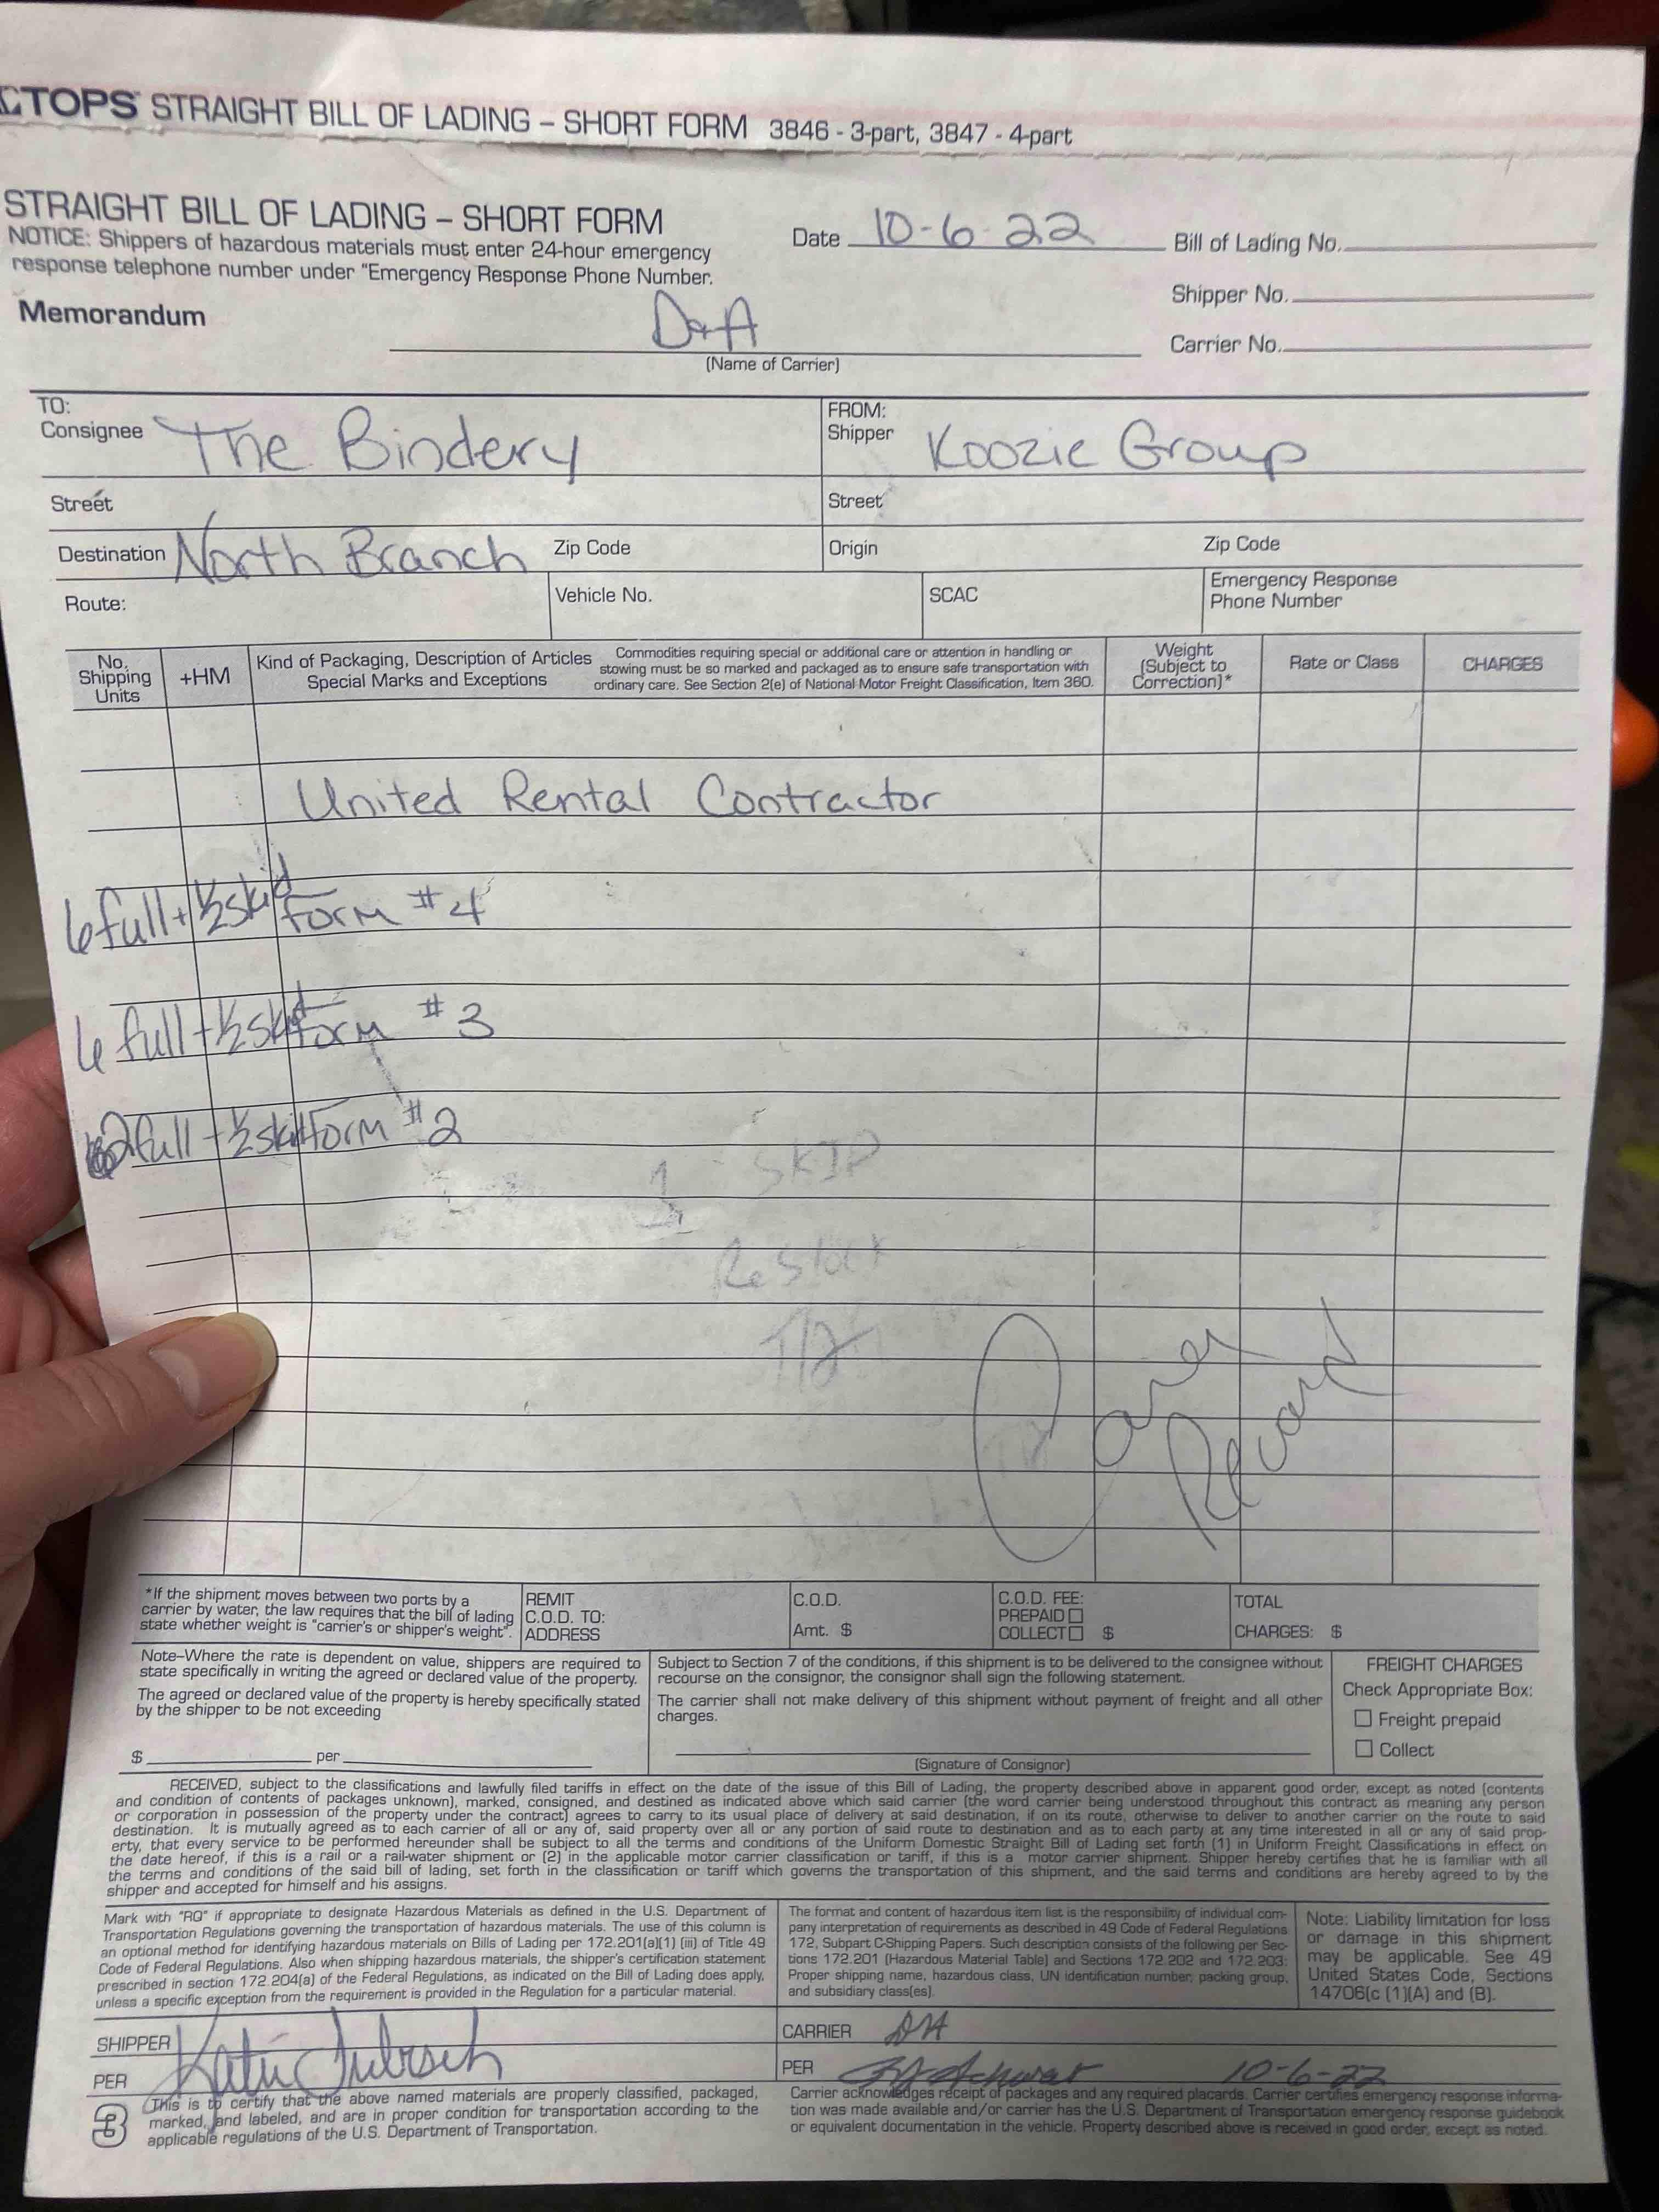 TOPS STRAIGHT BILL OF LADING – SHORT FORM 3846 - 3-part, 3847 - 4-part
STRAIGHT BILL OF LADING – SHORT FORM
NOTICE: Shippers of hazardous materials must enter 24-hour emergency
response telephone number under "Emergency Response Phone Number.
Date 10-6-22
Bill of Lading No.
Shipper No.
Carrier No.
Memorandum
D&A
(Name of Carrier)
TO:
Consignee The Bindery
FROM:
Shipper Koozie Group
Street
Street
Destination North Branch Zip Code
Origin Zip Code
Route:
Vehicle No.
SCAC
Emergency Response
Phone Number
No.
Shipping
Units
+HM
Kind of Packaging, Description of Articles
Special Marks and Exceptions
Commodities requiring special or additional care or attention in handling or
stowing must be so marked and packaged as to ensure safe transportation with
ordinary care. See Section 2(e) of National Motor Freight Classification, Item 360.
Weight
(Subject to
Correction)*
Rate or Class
CHARGES
United Rental Contractor
6 full + ½ skid form #4
6 full + ½ skid form #3
2 full + ½ skid form #2
1 SKID
*If the shipment moves between two ports by a
carrier by water, the law requires that the bill of lading
state whether weight is "carrier's or shipper's weight".
REMIT
C.O.D. TO:
ADDRESS
C.O.D.
Amt. $
C.O.D. FEE:
PREPAID
COLLECT $
TOTAL
CHARGES: $
Note–Where the rate is dependent on value, shippers are required to
state specifically in writing the agreed or declared value of the property.
The agreed or declared value of the property is hereby specifically stated
by the shipper to be not exceeding
$ per
Subject to Section 7 of the conditions, if this shipment is to be delivered to the consignee without
recourse on the consignor, the consignor shall sign the following statement.
The carrier shall not make delivery of this shipment without payment of freight and all other
charges.
(Signature of Consignor)
FREIGHT CHARGES
Check Appropriate Box:
Freight prepaid
Collect
RECEIVED, subject to the classifications and lawfully filed tariffs in effect on the date of the issue of this Bill of Lading, the property described above in apparent good order, except as noted (contents
and condition of contents of packages unknown), marked, consigned, and destined as indicated above which said carrier (the word carrier being understood throughout this contract as meaning any person
or corporation in possession of the property under the contract) agrees to carry to its usual place of delivery at said destination, if on its route, otherwise to deliver to another carrier on the route to said
destination. It is mutually agreed as to each carrier of all or any of, said property over all or any portion of said route to destination and as to each party at any time interested in all or any of said prop-
erty, that every service to be performed hereunder shall be subject to all the terms and conditions of the Uniform Domestic Straight Bill of Lading set forth (1) in Uniform Freight Classifications in effect on
the date hereof, if this is a rail or a rail-water shipment or (2) in the applicable motor carrier classification or tariff, if this is a motor carrier shipment. Shipper hereby certifies that he is familiar with all
the terms and conditions of the said bill of lading, set forth in the classification or tariff which governs the transportation of this shipment, and the said terms and conditions are hereby agreed to by the
shipper and accepted for himself and his assigns.
Mark with "RQ" if appropriate to designate Hazardous Materials as defined in the U.S. Department of
Transportation Regulations governing the transportation of hazardous materials. The use of this column is
an optional method for identifying hazardous materials on Bills of Lading per 172.201(a)(1) (iii) of Title 49
Code of Federal Regulations. Also when shipping hazardous materials, the shipper's certification statement
prescribed in section 172.204(a) of the Federal Regulations, as indicated on the Bill of Lading does apply,
unless a specific exception from the requirement is provided in the Regulation for a particular material.
The format and content of hazardous item list is the responsibility of individual com-
pany interpretation of requirements as described in 49 Code of Federal Regulations
172, Subpart C-Shipping Papers. Such description consists of the following per Sec-
tions 172.201 (Hazardous Material Table) and Sections 172.202 and 172.203:
Proper shipping name, hazardous class, UN identification number, packing group,
and subsidiary class(es).
Note: Liability limitation for loss
or damage in this shipment
may be applicable. See 49
United States Code, Sections
14706(c (1)(A) and (B).
SHIPPER
PER Katie
CARRIER DA
PER 10-6-22
3
This is to certify that the above named materials are properly classified, packaged,
marked, and labeled, and are in proper condition for transportation according to the
applicable regulations of the U.S. Department of Transportation.
Carrier acknowledges receipt of packages and any required placards. Carrier certifies emergency response informa-
tion was made available and/or carrier has the U.S. Department of Transportation emergency response guidebook
or equivalent documentation in the vehicle. Property described above is received in good order, except as noted.